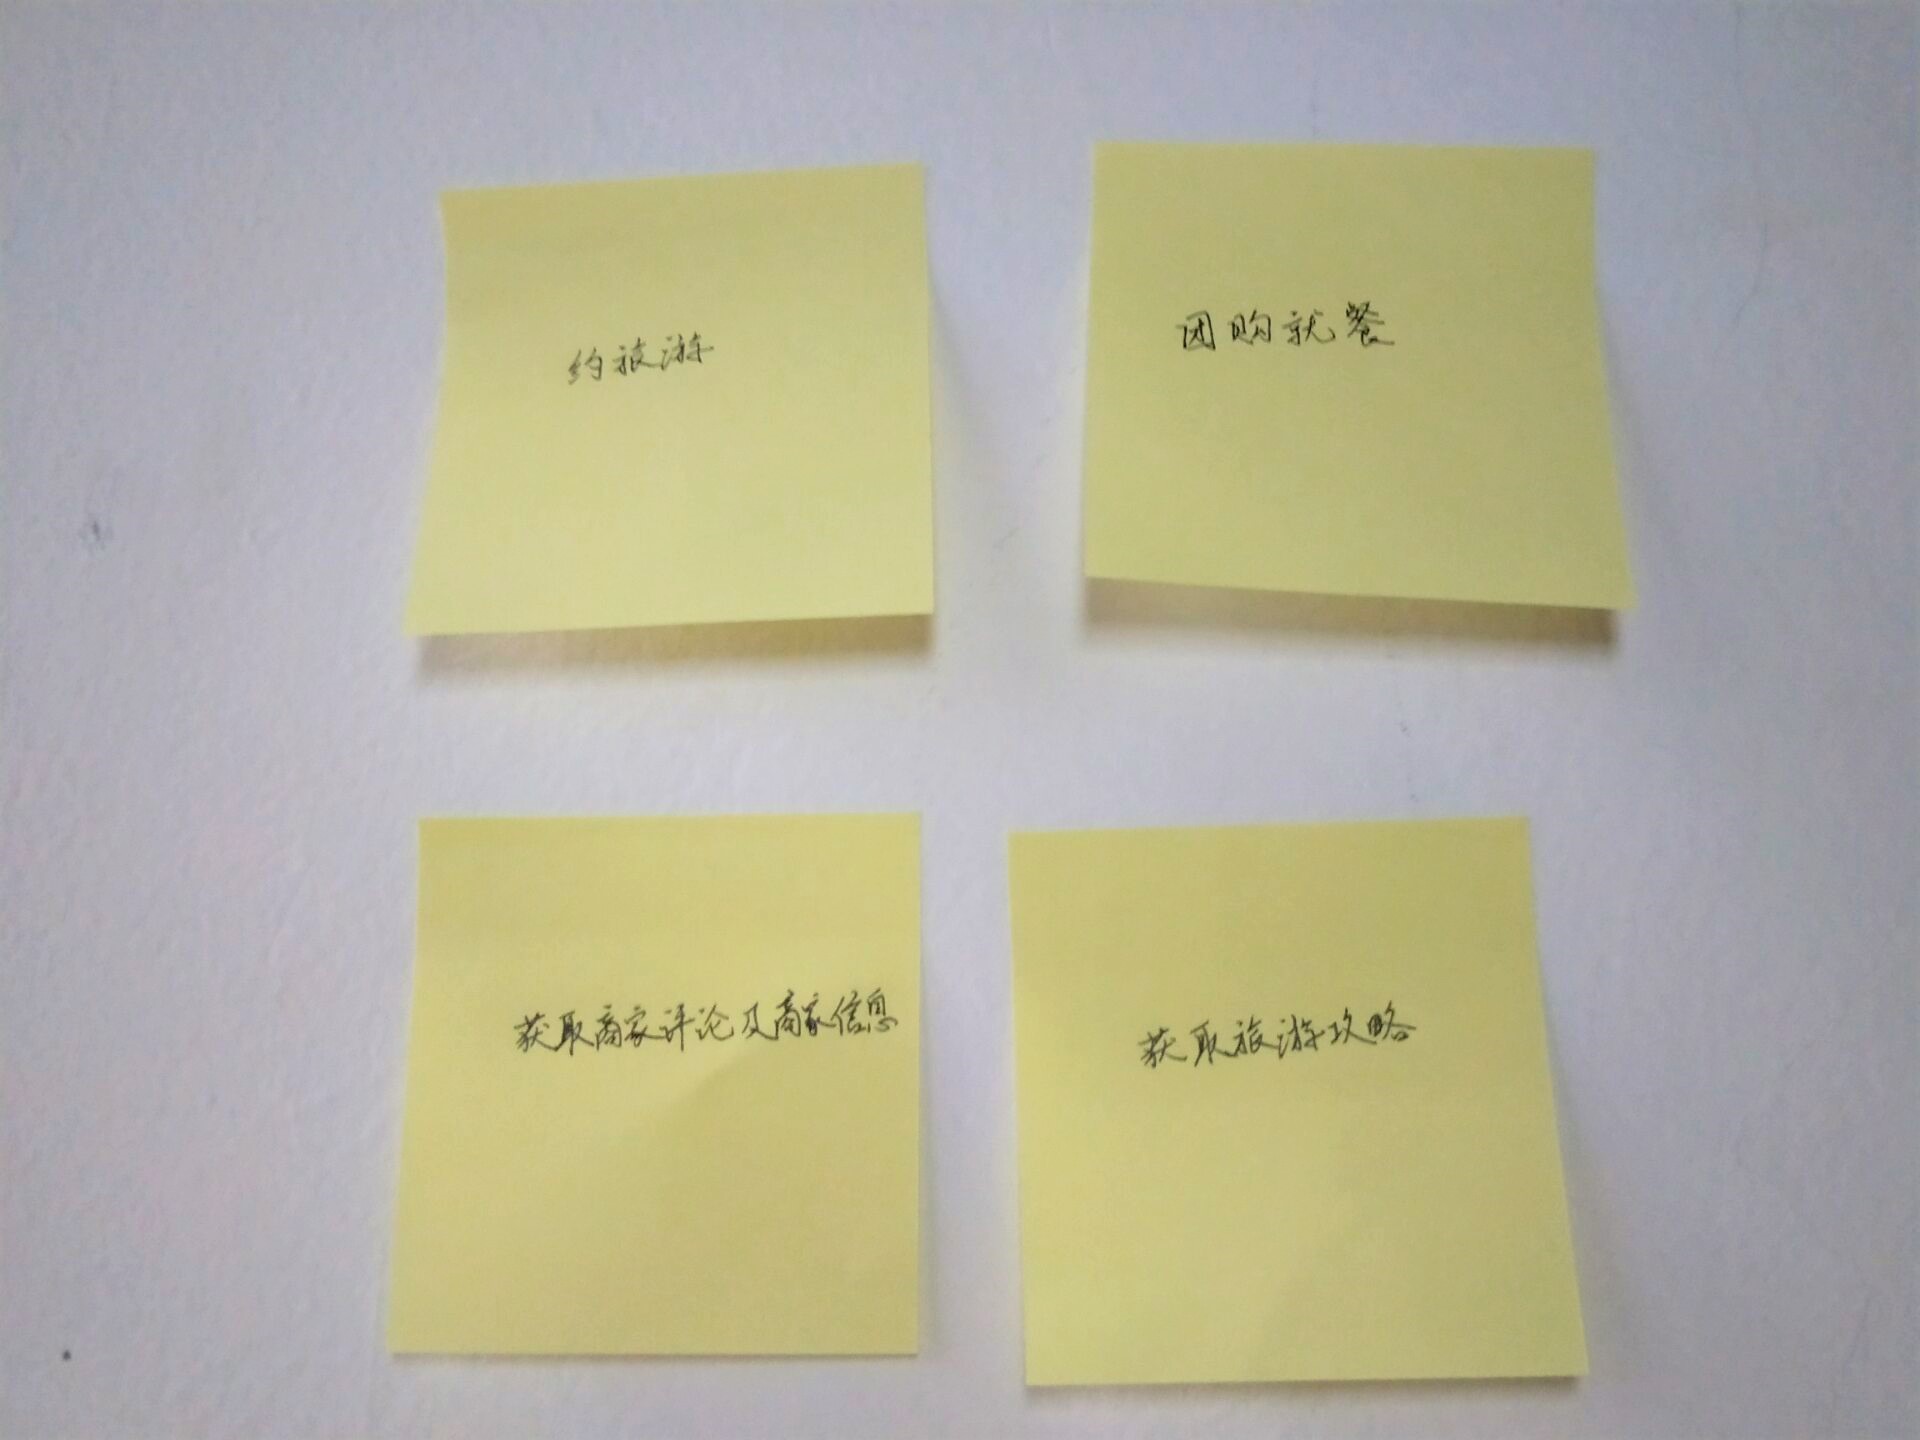 约旅游
团购就餐
获取商家评论及商家信息
获取旅游攻略